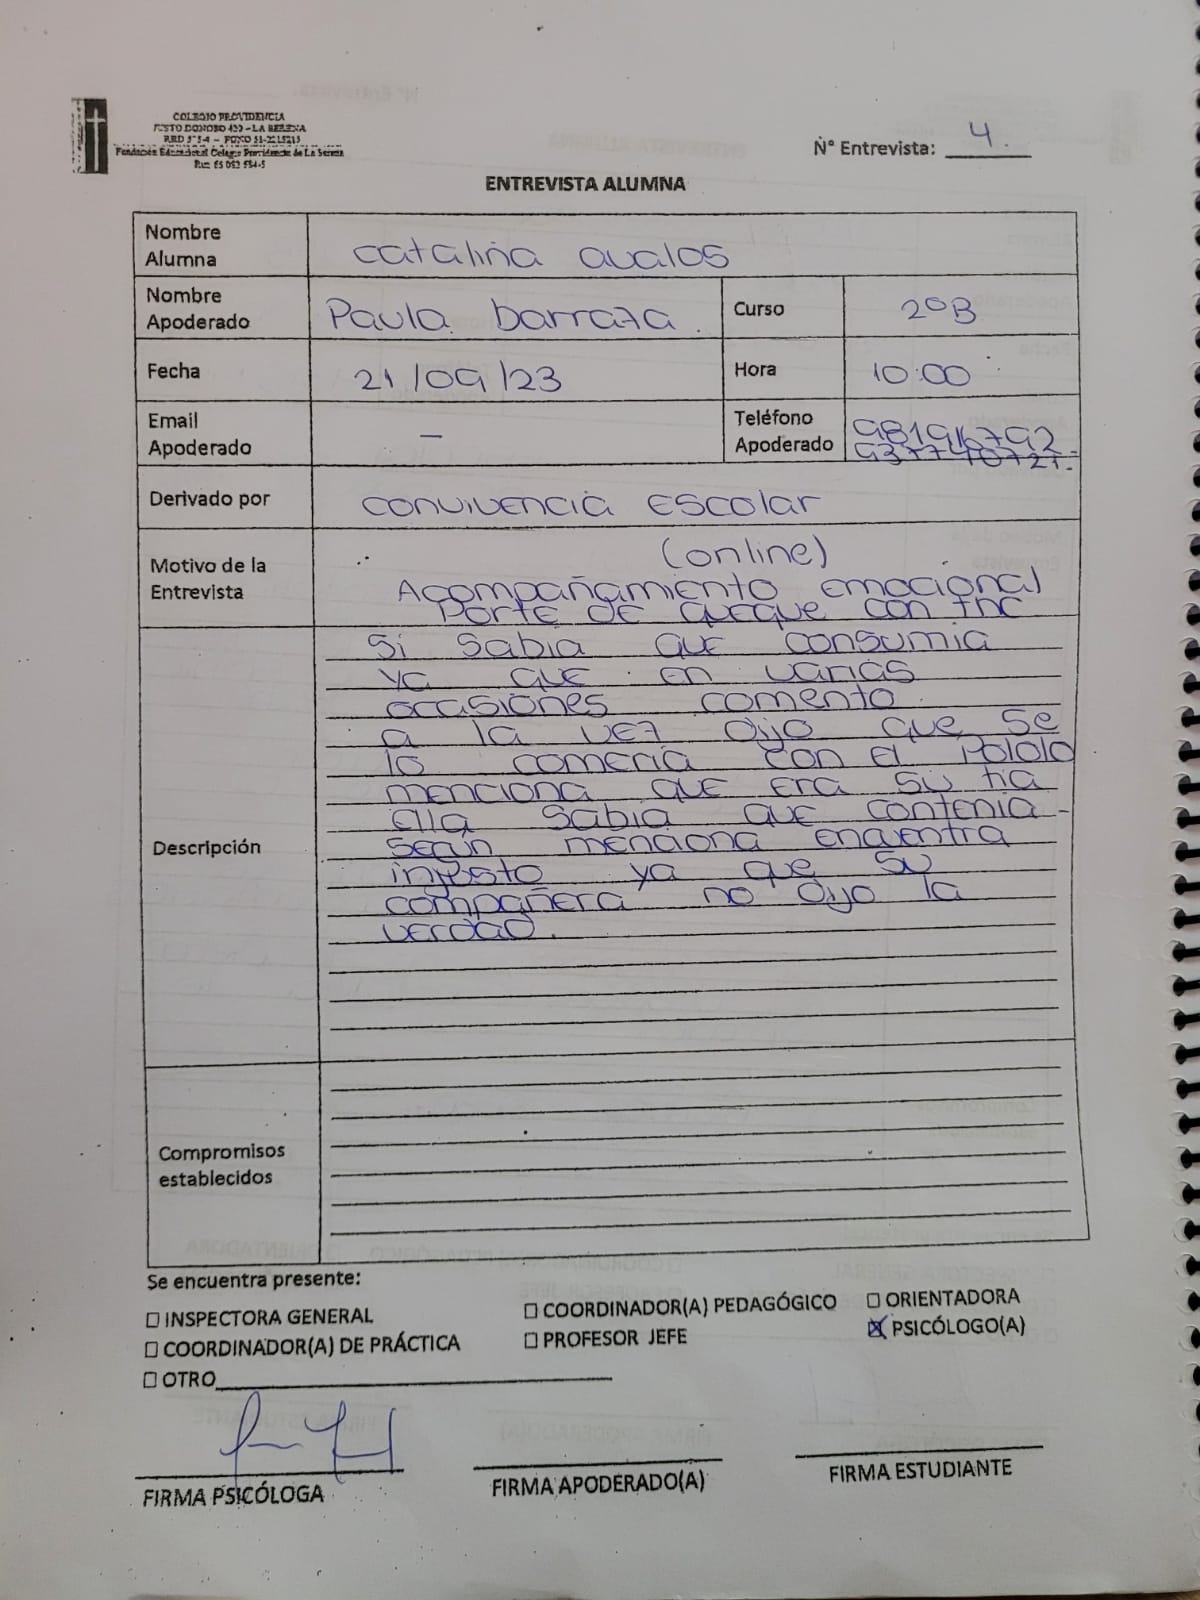 COLEGIO PROVIDENCIA
JUSTO DONOSO 420 - LA SERENA
Fundación Educacional Colegio Providencia de La Serena
N° Entrevista: 4.
ENTREVISTA ALUMNA
Nombre Alumna
cataliña avalos
Nombre Apoderado
Paula barraza.
Curso
2ºB
Fecha
21/09/23
Hora
10:00
Email Apoderado
–
Teléfono Apoderado
Derivado por
convivencia Escolar
Motivo de la Entrevista
(online)
Acompañamiento emocional
Porte de queque con thc
Descripción
Si sabia que consumia
ya que en varias
occasiones comento.
a la vez dijo que se
lo comeria con el Pololo
menciona que era su tia
ella sabia que contenia-
según menciona encuentra
injusto ya que su
compañera no dijo la
verdad.
Compromisos establecidos
Se encuentra presente:
☐ INSPECTORA GENERAL
☐ COORDINADOR(A) PEDAGÓGICO
☐ ORIENTADORA
☐ COORDINADOR(A) DE PRÁCTICA
☐ PROFESOR JEFE
☒ PSICÓLOGO(A)
☐ OTRO
FIRMA PSICÓLOGA
FIRMA APODERADO(A)
FIRMA ESTUDIANTE